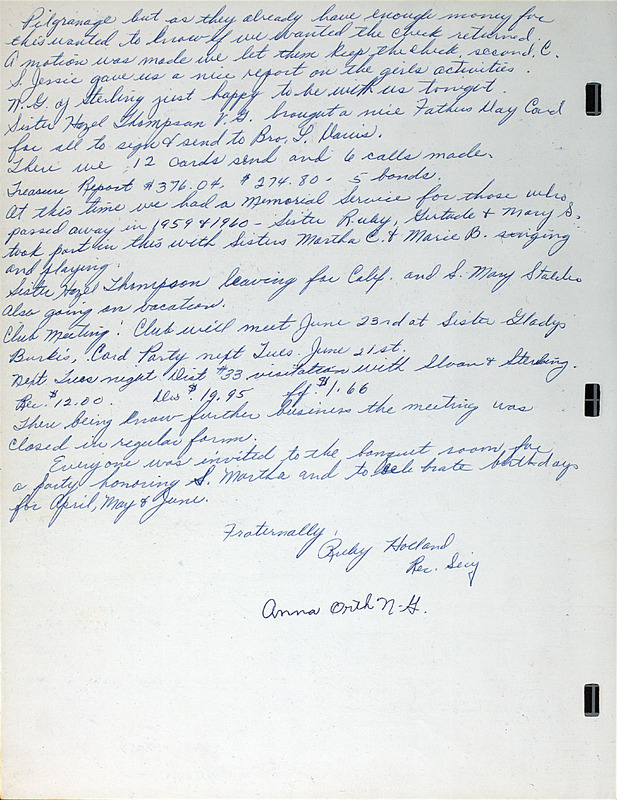 Pilgranage but as they already have enough money for
this wanted to know if we wanted the check returned.
A motion was made we let them keep the check, second, C.
S. Jessie gave us a nice report on the girls activities.
N.G. of Sterling just happy to be with us tonight.
Sister Hazel Thompson V.G. brought a nice Fathers Day Card
for all to sign & send to Bro. L. Davis.
There we 12 Cards send and 6 calls made.
Treasure Report $376.04, $274.80 - 5 bonds.
At this time we had a Memorial Service for those who
passed away in 1959 & 1960 - Sister Ruby, Gertrude & Mary S.
took part in this with Sisters Martha C. & Marie B. singing
and playing.
Sister Hazel Thompson leaving for Calif. and S. Mary
also going on vacation.
Club Meeting: Club will meet June 23rd at Sister Gladys
Burkis, Card Party next Tues. June 21st.
Next Tues night Dist #33 visitation with Sloan & Sterling.
Rec. $12.00 Dis. $19.95 $1.66
There being know further business the meeting was
closed in regular form.
Everyone was invited to the banquet room for
a party honoring S. Martha and to celebrate birthdays
for April, May & June.
Fraternally,
Ruby Holland
Rec. Secy
Anna Orth N.G.